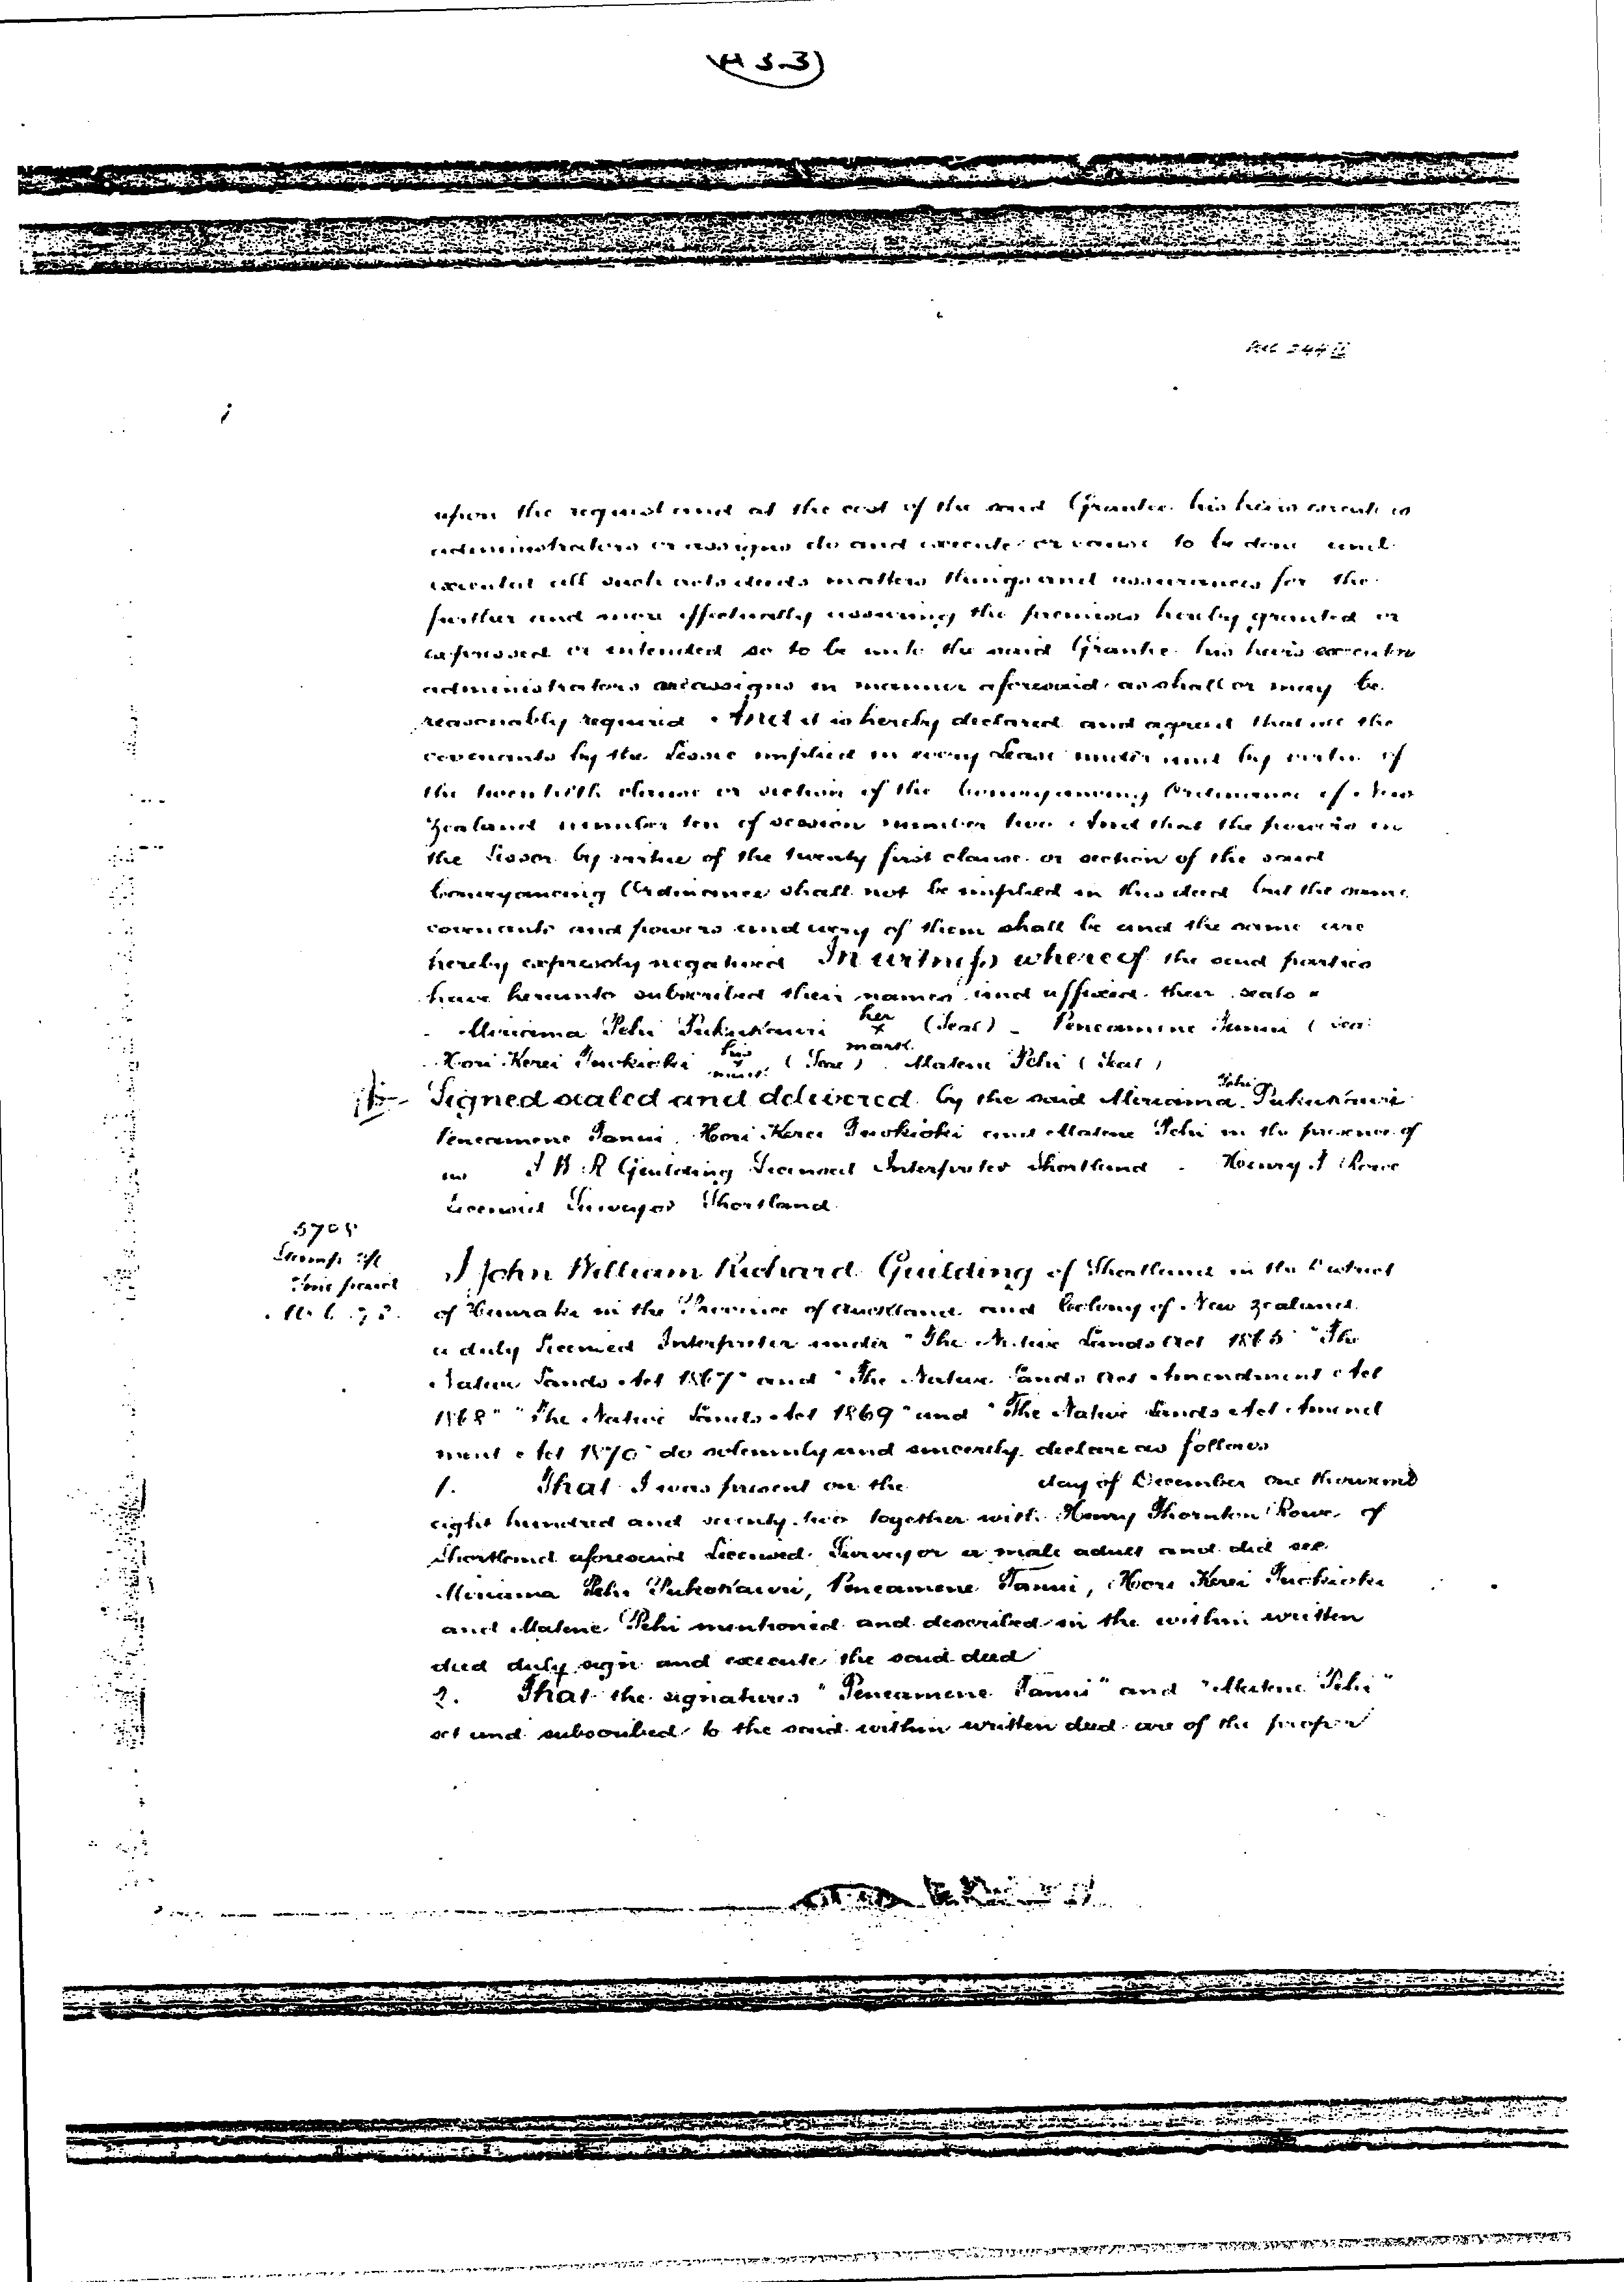 upon the request and at the cost of the said Grantee his heirs executors
administrators or assigns do and execute or cause to be done and
executed all such acts deeds matters things and assurances for the
further and more effectually assuring the premises hereby granted or
expressed or intended so to be unto the said Grantee his heirs executors
administrators assigns in manner aforesaid as shall or may be
reasonably required And it is hereby declared and agreed that all the
covenants by the Lessee implied in every Lease under and by virtue of
the twentieth clause or section of the Conveyancing Ordinance of New
Zealand number ten of session number two And that the powers in
the Lessor by virtue of the twenty first clause or section of the said
Conveyancing Ordinance shall not be implied in this deed but the same
covenants and powers and every of them shall be and the same are
hereby expressly negatived In witness whereof the said parties
have hereunto subscribed their names and affixed their seals
Miriama Pehi Pukukauri her x mark (Seal) Peneamene Tanui (Seal
Hori Kerei Tuokioki his x mark (Seal) Matene Pehi (Seal)
Signed sealed and delivered by the said Miriama Pehi Pukukauri
Peneamene Tanui Hori Kerei Tuokioki and Matene Pehi in the presence of
J W R Guilding Licensed Interpreter Shortland Henry T Rowe
Licensed Surveyor Shortland
I John William Richard Guilding of Shortland in the District
of Hauraki in the Province of Auckland and Colony of New Zealand
a duly licensed Interpreter under "The Native Lands Act 1865" "The
Native Lands Act 1867" and "The Native Lands Act Amendment Act
1868" "The Native Lands Act 1869" and "The Native Lands Act Amend
ment Act 1870" do solemnly and sincerely declare as follows
1. That I was present on the day of December one thousand
eight hundred and seventy two together with Henry Thornton Rowe of
Shortland aforesaid Licensed Surveyor a male adult and did see
Miriama Pehi Pukukauri, Peneamene Tanui, Hori Kerei Tuokioki
and Matene Pehi mentioned and described in the within written
deed duly sign and execute the said deed
2. That the signatures "Peneamene Tanui" and "Matene Pehi"
set and subscribed to the said within written deed are of the proper